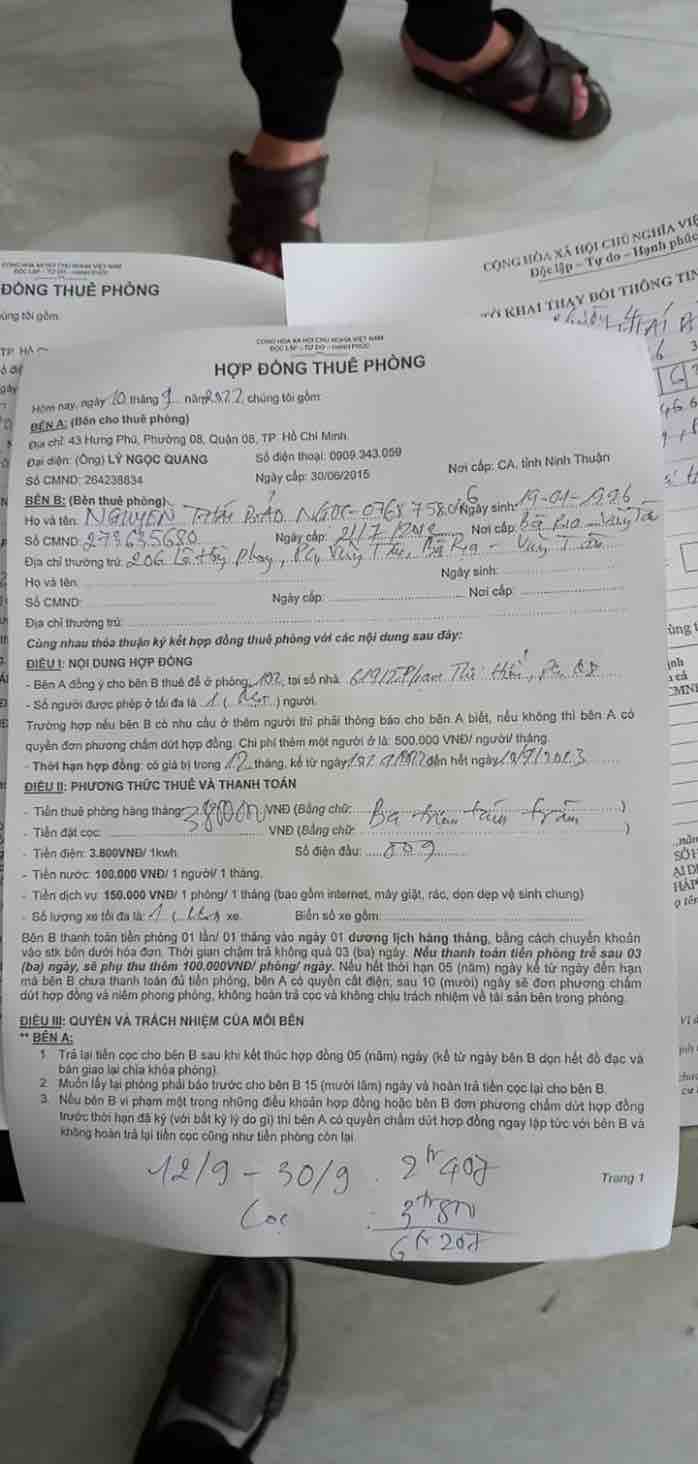 CỘNG HÒA XÃ HỘI CHỦ NGHĨA VIỆ
Độc lập - Tự do - Hạnh phúc
TỜ KHAI THAY ĐỔI THÔNG TIN
ĐỒNG THUÊ PHÒNG
úng tôi gồm
CỘNG HÒA XÃ HỘI CHỦ NGHĨA VIỆT NAM
ĐỘC LẬP - TỰ DO - HẠNH PHÚC
HỢP ĐỒNG THUÊ PHÒNG
Hôm nay, ngày 10 tháng 9 năm 2022, chúng tôi gồm:
BÊN A: (Bên cho thuê phòng)
Địa chỉ: 43 Hưng Phú, Phường 08, Quận 08, TP. Hồ Chí Minh.
Đại diện: (Ông) LÝ NGỌC QUANG Số điện thoại: 0909.343.059
Số CMND: 264238834 Ngày cấp: 30/06/2015 Nơi cấp: CA. tỉnh Ninh Thuận
BÊN B: (Bên thuê phòng)
Họ và tên: NGUYEN THÁI BẢO NGỌC - Ngày sinh: 19-01-1996
Số CMND: 273635680 Ngày cấp: 21/7/ Nơi cấp: Bà Rịa - Vũng Tàu
Địa chỉ thường trú: 206 Lê Hồng Phong, Vũng Tàu, Bà Rịa - Vũng Tàu
Họ và tên: Ngày sinh:
Số CMND: Ngày cấp: Nơi cấp:
Địa chỉ thường trú:
Cùng nhau thỏa thuận ký kết hợp đồng thuê phòng với các nội dung sau đây:
ĐIỀU I: NỘI DUNG HỢP ĐỒNG
- Bên A đồng ý cho bên B thuê để ở phòng: 102, tại số nhà: Phạm Thế Hiển,
- Số người được phép ở tối đa là: 1 ( ) người.
Trường hợp nếu bên B có nhu cầu ở thêm người thì phải thông báo cho bên A biết, nếu không thì bên A có
quyền đơn phương chấm dứt hợp đồng. Chi phí thêm một người ở là: 500.000 VNĐ/ người/ tháng.
- Thời hạn hợp đồng: có giá trị trong 12 tháng, kể từ ngày đến hết ngày
ĐIỀU II: PHƯƠNG THỨC THUÊ VÀ THANH TOÁN
- Tiền thuê phòng hàng tháng: VNĐ (Bằng chữ: Ba triệu tám trăm )
- Tiền đặt cọc: VNĐ (Bằng chữ: )
- Tiền điện: 3.800VNĐ/ 1kwh. Số điện đầu: 809
- Tiền nước: 100.000 VNĐ/ 1 người/ 1 tháng.
- Tiền dịch vụ: 150.000 VNĐ/ 1 phòng/ 1 tháng (bao gồm internet, máy giặt, rác, dọn dẹp vệ sinh chung)
- Số lượng xe tối đa là: 1 ( ) xe. Biển số xe gồm:
Bên B thanh toán tiền phòng 01 lần/ 01 tháng vào ngày 01 dương lịch hàng tháng, bằng cách chuyển khoản
vào stk bên dưới hóa đơn. Thời gian chậm trả không quá 03 (ba) ngày. Nếu thanh toán tiền phòng trễ sau 03
(ba) ngày, sẽ phụ thu thêm 100.000VNĐ/ phòng/ ngày. Nếu hết thời hạn 05 (năm) ngày kể từ ngày đến hạn
mà bên B chưa thanh toán đủ tiền phòng, bên A có quyền cắt điện; sau 10 (mười) ngày sẽ đơn phương chấm
dứt hợp đồng và niêm phong phòng, không hoàn trả cọc và không chịu trách nhiệm về tài sản bên trong phòng.
ĐIỀU III: QUYỀN VÀ TRÁCH NHIỆM CỦA MỖI BÊN
** BÊN A:
1. Trả lại tiền cọc cho bên B sau khi kết thúc hợp đồng 05 (năm) ngày (kể từ ngày bên B dọn hết đồ đạc và
bàn giao lại chìa khóa phòng).
2. Muốn lấy lại phòng phải báo trước cho bên B 15 (mười lăm) ngày và hoàn trả tiền cọc lại cho bên B.
3. Nếu bên B vi phạm một trong những điều khoản hợp đồng hoặc bên B đơn phương chấm dứt hợp đồng
trước thời hạn đã ký (với bất kỳ lý do gì) thì bên A có quyền chấm dứt hợp đồng ngay lập tức với bên B và
không hoàn trả lại tiền cọc cũng như tiền phòng còn lại.
12/9 - 30/9 : 2tr407
Cọc : 3tr800
6tr207
Trang 1